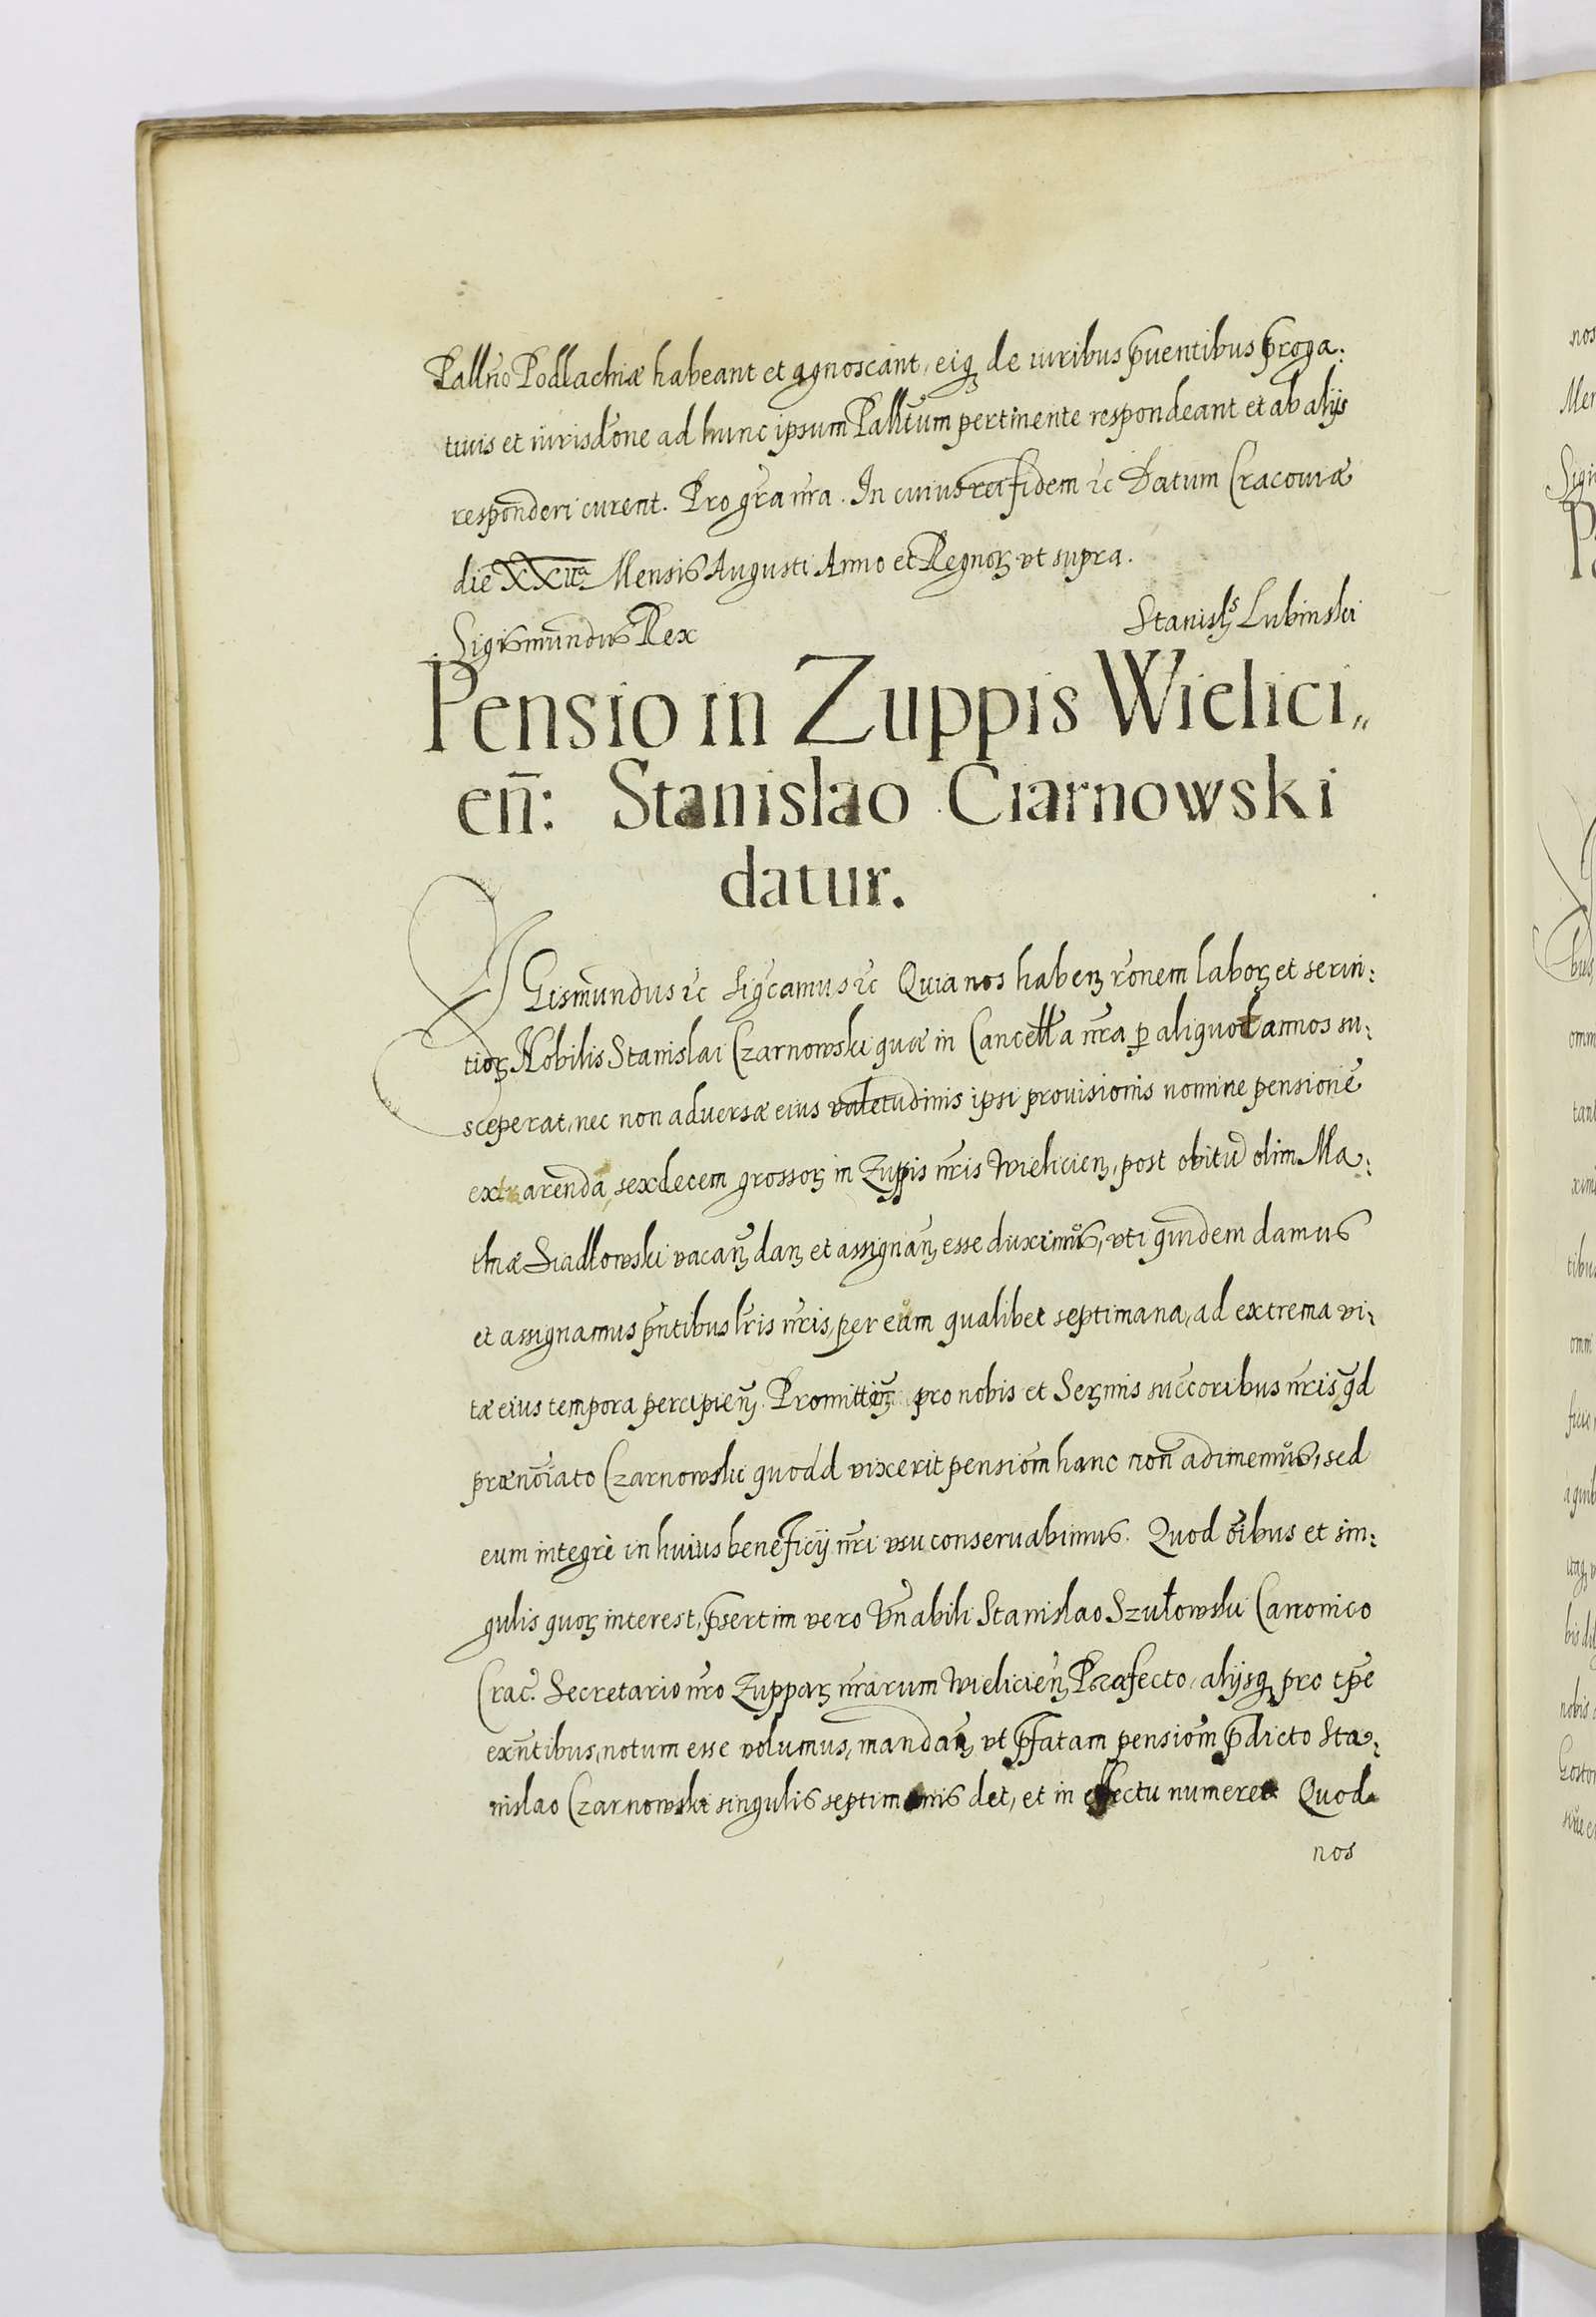 Pallno Podlachiæ habeant et agnoscant, eiq₃ de iuribus ꝓuentibus p̃roga:
tiuis et iurisdone ad hunc ipsum Pallm̃ pertinente respondeant et ab alijs
responderi curent. Pro gr̃a nr̃a. In cuius rei fidem ꝛc Datum Cracouiæ
die XXIIa Mensis Augusti Anno et Regnoꝝ vt supra.
Sigismundus Rex Stanisls Lubinski
Pensio in Zuppis Wielici„
en̄: Stanislao Ciarnowski
datur.
SIGismundus ꝛc Sig̃camus ꝛc Quia nos habeñ r̃onem laboꝝ et seruı:
tioꝝ Nobilis Stanislai Czarnowski quæ in Cancellã nr̃a ꝑ aliquot annos su:
sceperat, nec non aduersæ eius valetudinis ipsi prouisionis nomine pensionẽ
ex arenda, sexdecem grossoꝝ in Zuppis nr̃is Wielicieñ, post obitũ olim Ma:
thiæ Siadłowski vacañ dañ et assignañ esse duximus, vti quidem damus
et assignamus p̃ntibus lr̃is nr̃is, per eum qualibet septimana, ad extrema vi:
tæ eius tempora percipieñ. Promitteñ pro nobis et Sermis succoribus nr̃is, qd
prænoĩato Czarnowski quoad vixerit pensiom̃ hanc non adimemus, sed
eum integrè in huius beneficij nr̃i vsu conseruabimus. Quod oĩbus et sin:
gulis quoꝝ interest, p̃sertim vero Vñabili Stanislao Szułowski Canonico
Crac̃. Secretario nr̃o Zuppaꝝ nr̃arum Wielicieñ Præfecto, alijsq₃ pro tp̃e
exñtibus, notum esse volumus, mandañ vt p̃fatam pensiom̃ p̃dicto Sta:
nislao Czarnowski singulis septimanis det, et in effectu numeret Quod
nos